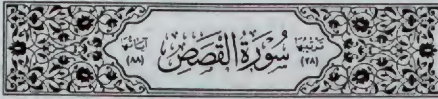 ترتيبها (٢٨)
سُورَةُ القَصَصِ
آياتها (٨٨)